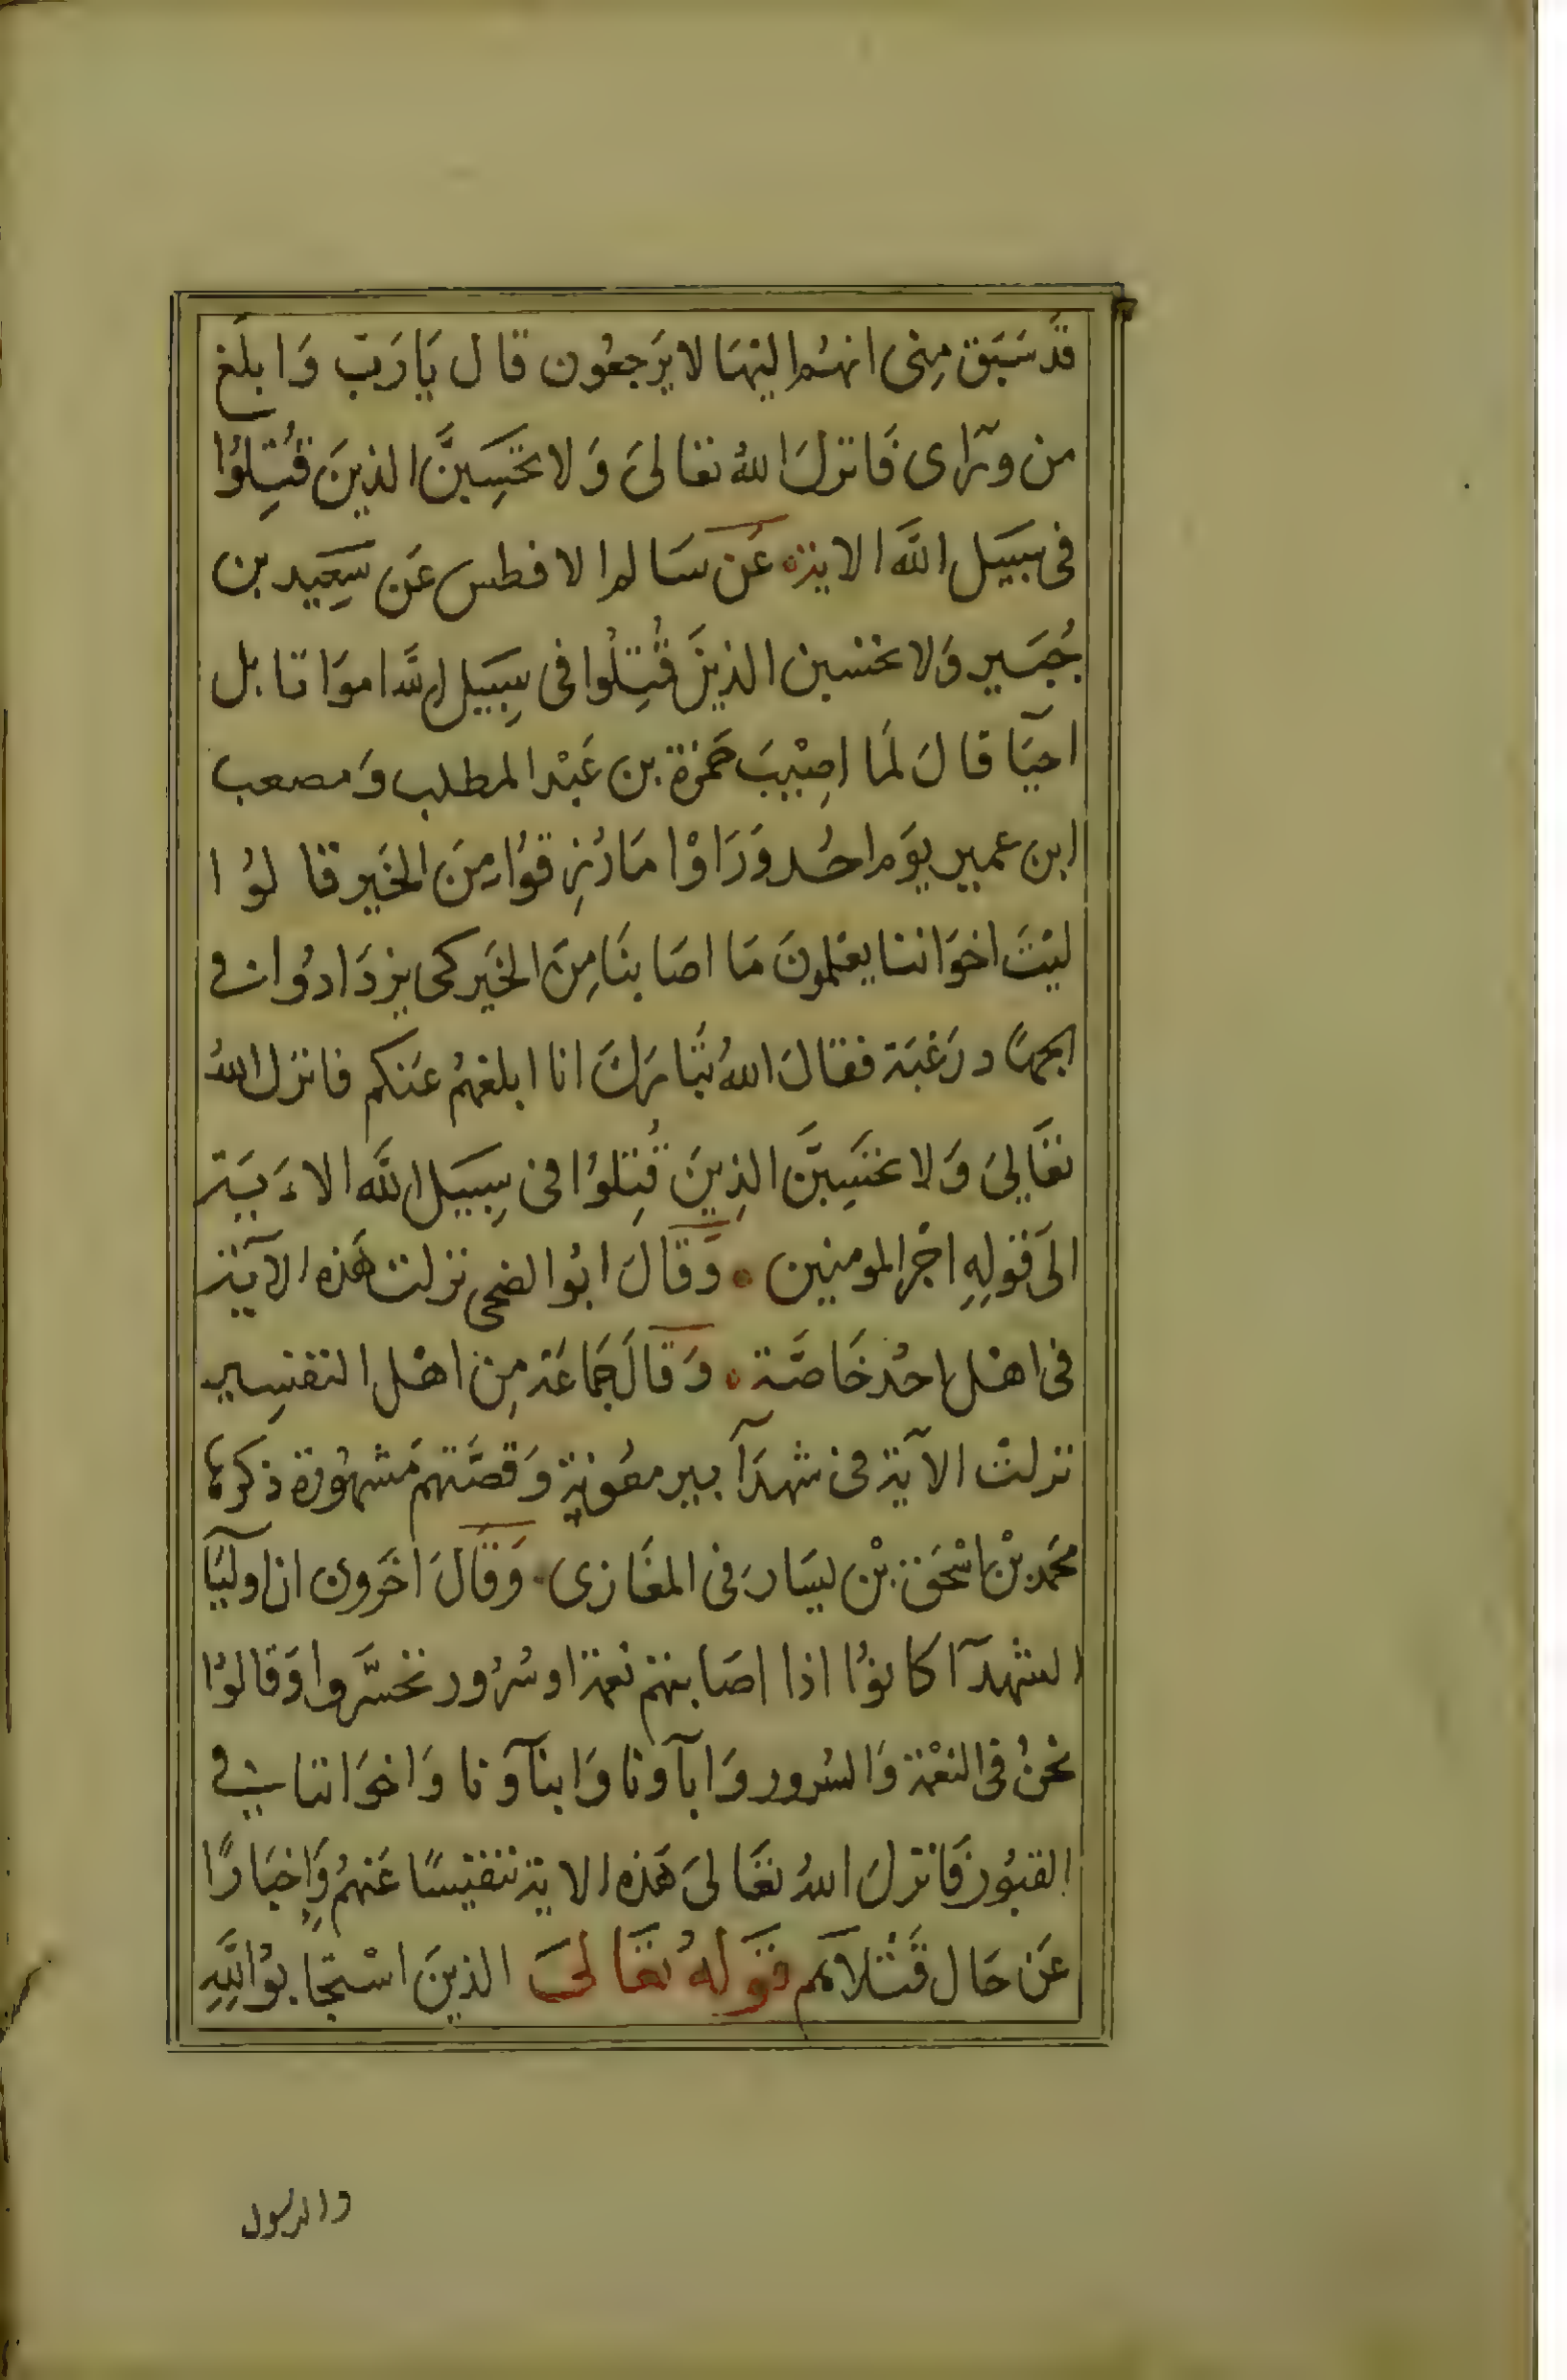 قد سَبَق مِنى انهُم اليهَا لا يَرجعُون قال يَا رَبّ وَ ابلَغ
من ورَآى فَانزلَ اللهُ تعالىَ وَ لا تحَسِبَنَّ الذينَ قُتِلوُا
فى سَبيَل اللَّه الاية عَن سَالم الافطس عَن سَعِيد بن
جُبَير وَلا تحسبن الذينَ قُتِلُوا فى سِبَيل اللَّه اموَاتا بل
احيَآ قالَ لمَا اصِيْبَ حَمزة بن عَبْد المطلب وَمصعب
ابن عمير يوَم احُد وَرَاوْا مَا رُزِقوُا مِنَ الخَير قالوُا
ليْتَ اخوَاننا يعْلمونَ مَا اصَابنَا مِنَ الخَير كى يزدَادوُا فى
الجهَاد رَغبَة فقالَ اللهُ تبَارَكَ انا ابلغهُم عَنكم فانزل اللهُ
تعَاليَ وَلا تحَسِبَنَّ الذِينَ قُتِلوُا فى سِبيَل اللَّه الاءَيَة
الىَ قولِهِ اجْر المومنِين وَقَالَ ابُو الضحى نزلت هَذه الآية
فى اهْل احُد خَاصَّة وَقالَ جَمَاعَة مِن اهْل التفسِير
نزلتْ الآيَة فى شهدَآ بير معُونة وَقصَّتهم مَشهُورة ذكرهَا
محَمد بْن اسْحَق بْن يسَار فى المغَازى وَقَالَ اخَرون ان اوليَآ
الشهدَآ كانوُا اذا اصَابتهم نعمَة او سُرُور تحَسَّروا وَقالوُا
نحنُ فى النعْمَة وَالسُرور وَابآونا وَابنآونا وَاخوَاننا فى
القبُور فَانزلَ اللهُ تعَالىَ هَذه الاية تنفيسًا عَنهُم وَاِخبَارًا
عَن حَال قَتْلاهَم قوَلهُ تعَالىَ الذينَ اسْتجَابوُا لِلَّهِ
والرسول